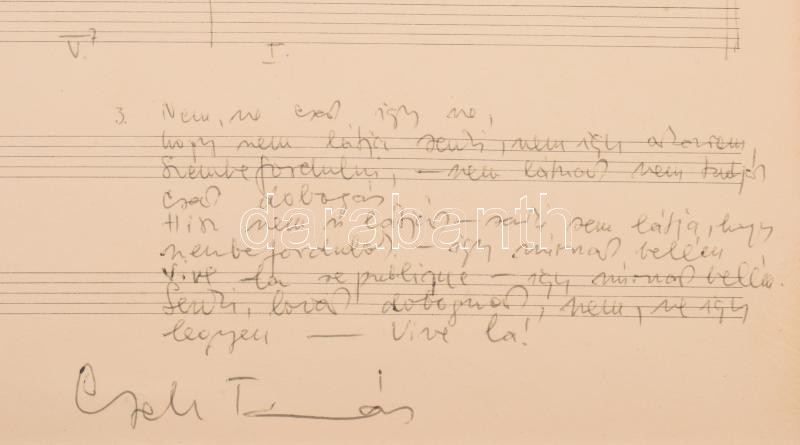 V.7 I.
3. Nem, ne csak így ne,
hogy nem látja senki, nem így akarom,
szembefordulni, – nem látnak nem tudják
csak dobogás!
Hisz nem is látják – senki sem látja, hogy
szembefordulok. – így írnak belém
Vive la republique – így írnak belém.
Senki, lovak dobognak, nem, ne így
legyen — Vive la!
Cseh Tamás
darabanth